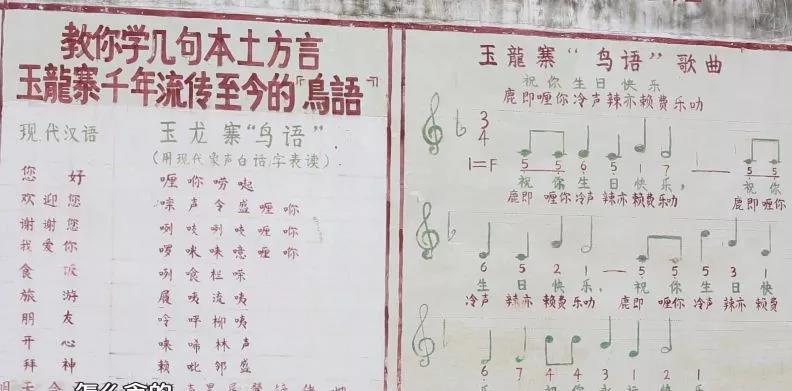 教你学几句本土方言
玉龍寨千年流传至今的「鳥語」
现代汉语 玉龙寨“鸟语”
(用现代家声白话字表读)
您好 喱你唠哒
欢迎您 嚟声令盛喱你
谢谢您 咧吱咧吱喱你
我爱你 啰咪咪噫喱你
食饭 咧食栏嚟
旅游 履咦流咦
朋友 呤呯柳咦
开心 唻唏林声
拜神 赖吡邻盛
怎么念的
玉龍寨“鸟语”歌曲
祝你生日快乐
鹿即喱你冷声辣亦赖费乐叻
3
4
1=F 5 5 6 5 1 7 — 5 5
祝你生日快乐， 祝你
鹿即喱你冷声辣亦赖费乐叻 鹿即喱你
6 5 2 1 — 5 5 5 3 1
生日快乐， 祝你生日快
冷声辣亦赖费乐叻 鹿即喱你冷声辣亦赖费
6 7 4 4 3 1 2 1